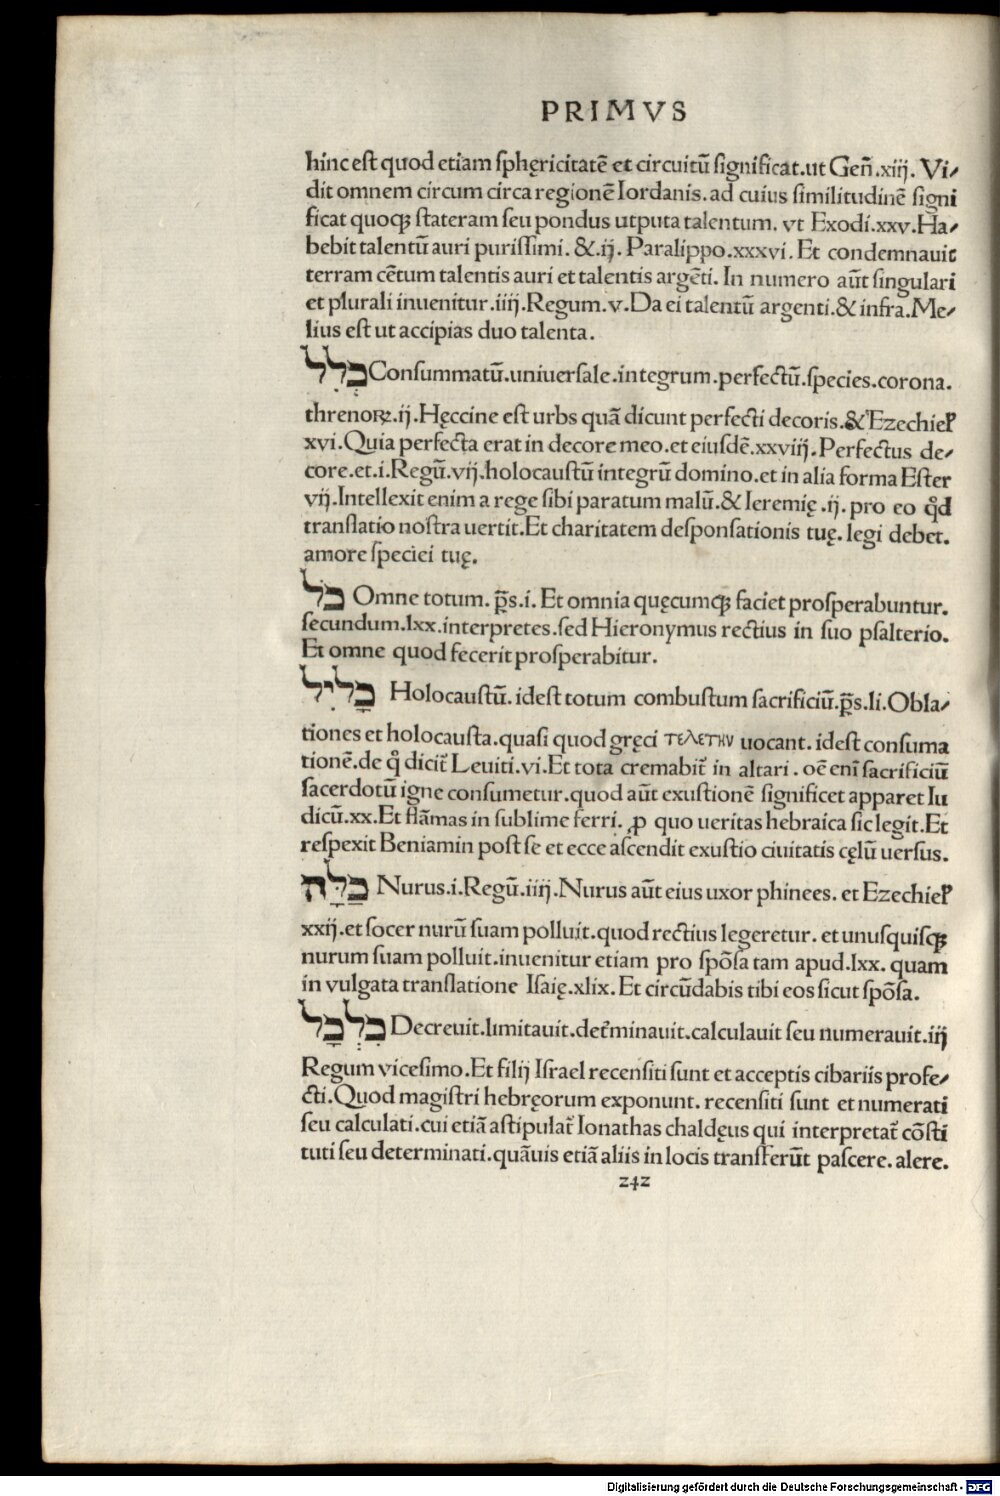 PRIMVS
hinc est quod etiam sphęricitatē et circuitū significat.ut Geñ.xiij. Vi⸗
dit omnem circum circa regionē Iordanis.ad cuius similitudinē signi
ficat quoqꝫ stateram seu pondus utputa talentum. vt Exodi.xxv.Ha⸗
bebit talentū auri purissimi. &.ij. Paralippo.xxxvi. Et condemnauit
terram cētum talentis auri et talentis argēti. In numero aūt singulari
et plurali inuenitur.iiij.Regum.v.Da ei talentū argenti.& infra.Me⸗
lius est ut accipias duo talenta.
כְּלִל Consummatū.uniuersale.integrum.perfectū.species.corona.
threnoꝝ.ij.Hęccine est urbs quā dicunt perfecti decoris.& Ezechieł
xvi.Quia perfecta erat in decore meo.et eiusdē.xxviij.Perfectus de⸗
core.et.i.Regū.vij.holocaustū integrū domino.et in alia forma Ester
vij.Intellexit enim a rege sibi paratum malū.& Ieremię.ij. pro eo qd̊
translatio nostra uertit.Et charitatem desponsationis tuę. legi debet.
amore speciei tuę.
כֹּל Omne totum. p̄s.i. Et omnia quęcumqꝫ faciet prosperabuntur.
secundum.lxx.interpretes.sed Hieronymus rectius in suo psalterio.
Et omne quod fecerit prosperabitur.
כָּלִיל Holocaustū. idest totum combustum sacrificiū.p̄s.li.Obla⸗
tiones et holocausta.quasi quod gręci τελετην uocant. idest consuma
tionē.de q̊ dicit̃ Leuiti.vi.Et tota cremabit̃ in altari . oē eni sacrificiū
sacerdotū igne consumetur.quod aūt exustionē significet apparet Iu
dicū.xx.Et flāmas in sublime ferri. ꝓ quo ueritas hebraica sic legit.Et
respexit Beniamin post se et ecce ascendit exustio ciuitatis cęlū uersus.
כַּלָּה Nurus.i.Regū.iiij.Nurus aūt eius uxor phinees. et Ezechieł
xxij.et socer nurū suam polluit.quod rectius legeretur. et unusquisqꝫ
nurum suam polluit.inuenitur etiam pro spōsa tam apud.lxx. quam
in vulgata translatione Isaię.xlix.Et circūdabis tibi eos sicut spōsa.
כִּלְכָּל Decreuit.limitauit.det̃minauit.calculauit seu numerauit.iij
Regum vicesimo.Et filij Israel recensiti sunt et acceptis cibariis profe⸗
cti.Quod magistri hebręorum exponunt. recensiti sunt et numerati
seu calculati.cui etiā astipulat̃ Ionathas chaldęus qui interpretat̃ cōsti
tuti seu determinati.quāuis etiā aliis in locis transferūt pascere. alere.
242
Digitalisierung gefördert durch die Deutsche Forschungsgemeinschaft - DFG